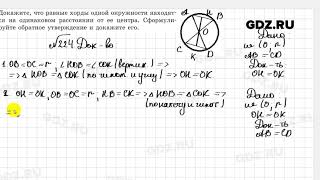 Докажите, что равные хорды одной окружности находят-
ся на одинаковом расстоянии от ее центра. Сформули-
руйте обратное утверждение и докажите его.
GDZ.RU
№224 Док-во
1. OB=OC=r, ∠HOB=∠COK (вертик) =>
=> △HOB=△COK (по гипот и углу) => OH=OK
2. OH=OK, OB=OC=r, HB=CK => △HOB=△COK =>
(по катету и гипот)
=>
A
B
H
O
C
K
D
Дано
w (O, r)
AB=CD
Док-ть
OH=OK
Дано
w (O, r)
OH=OK
Док-ть
AB=CD